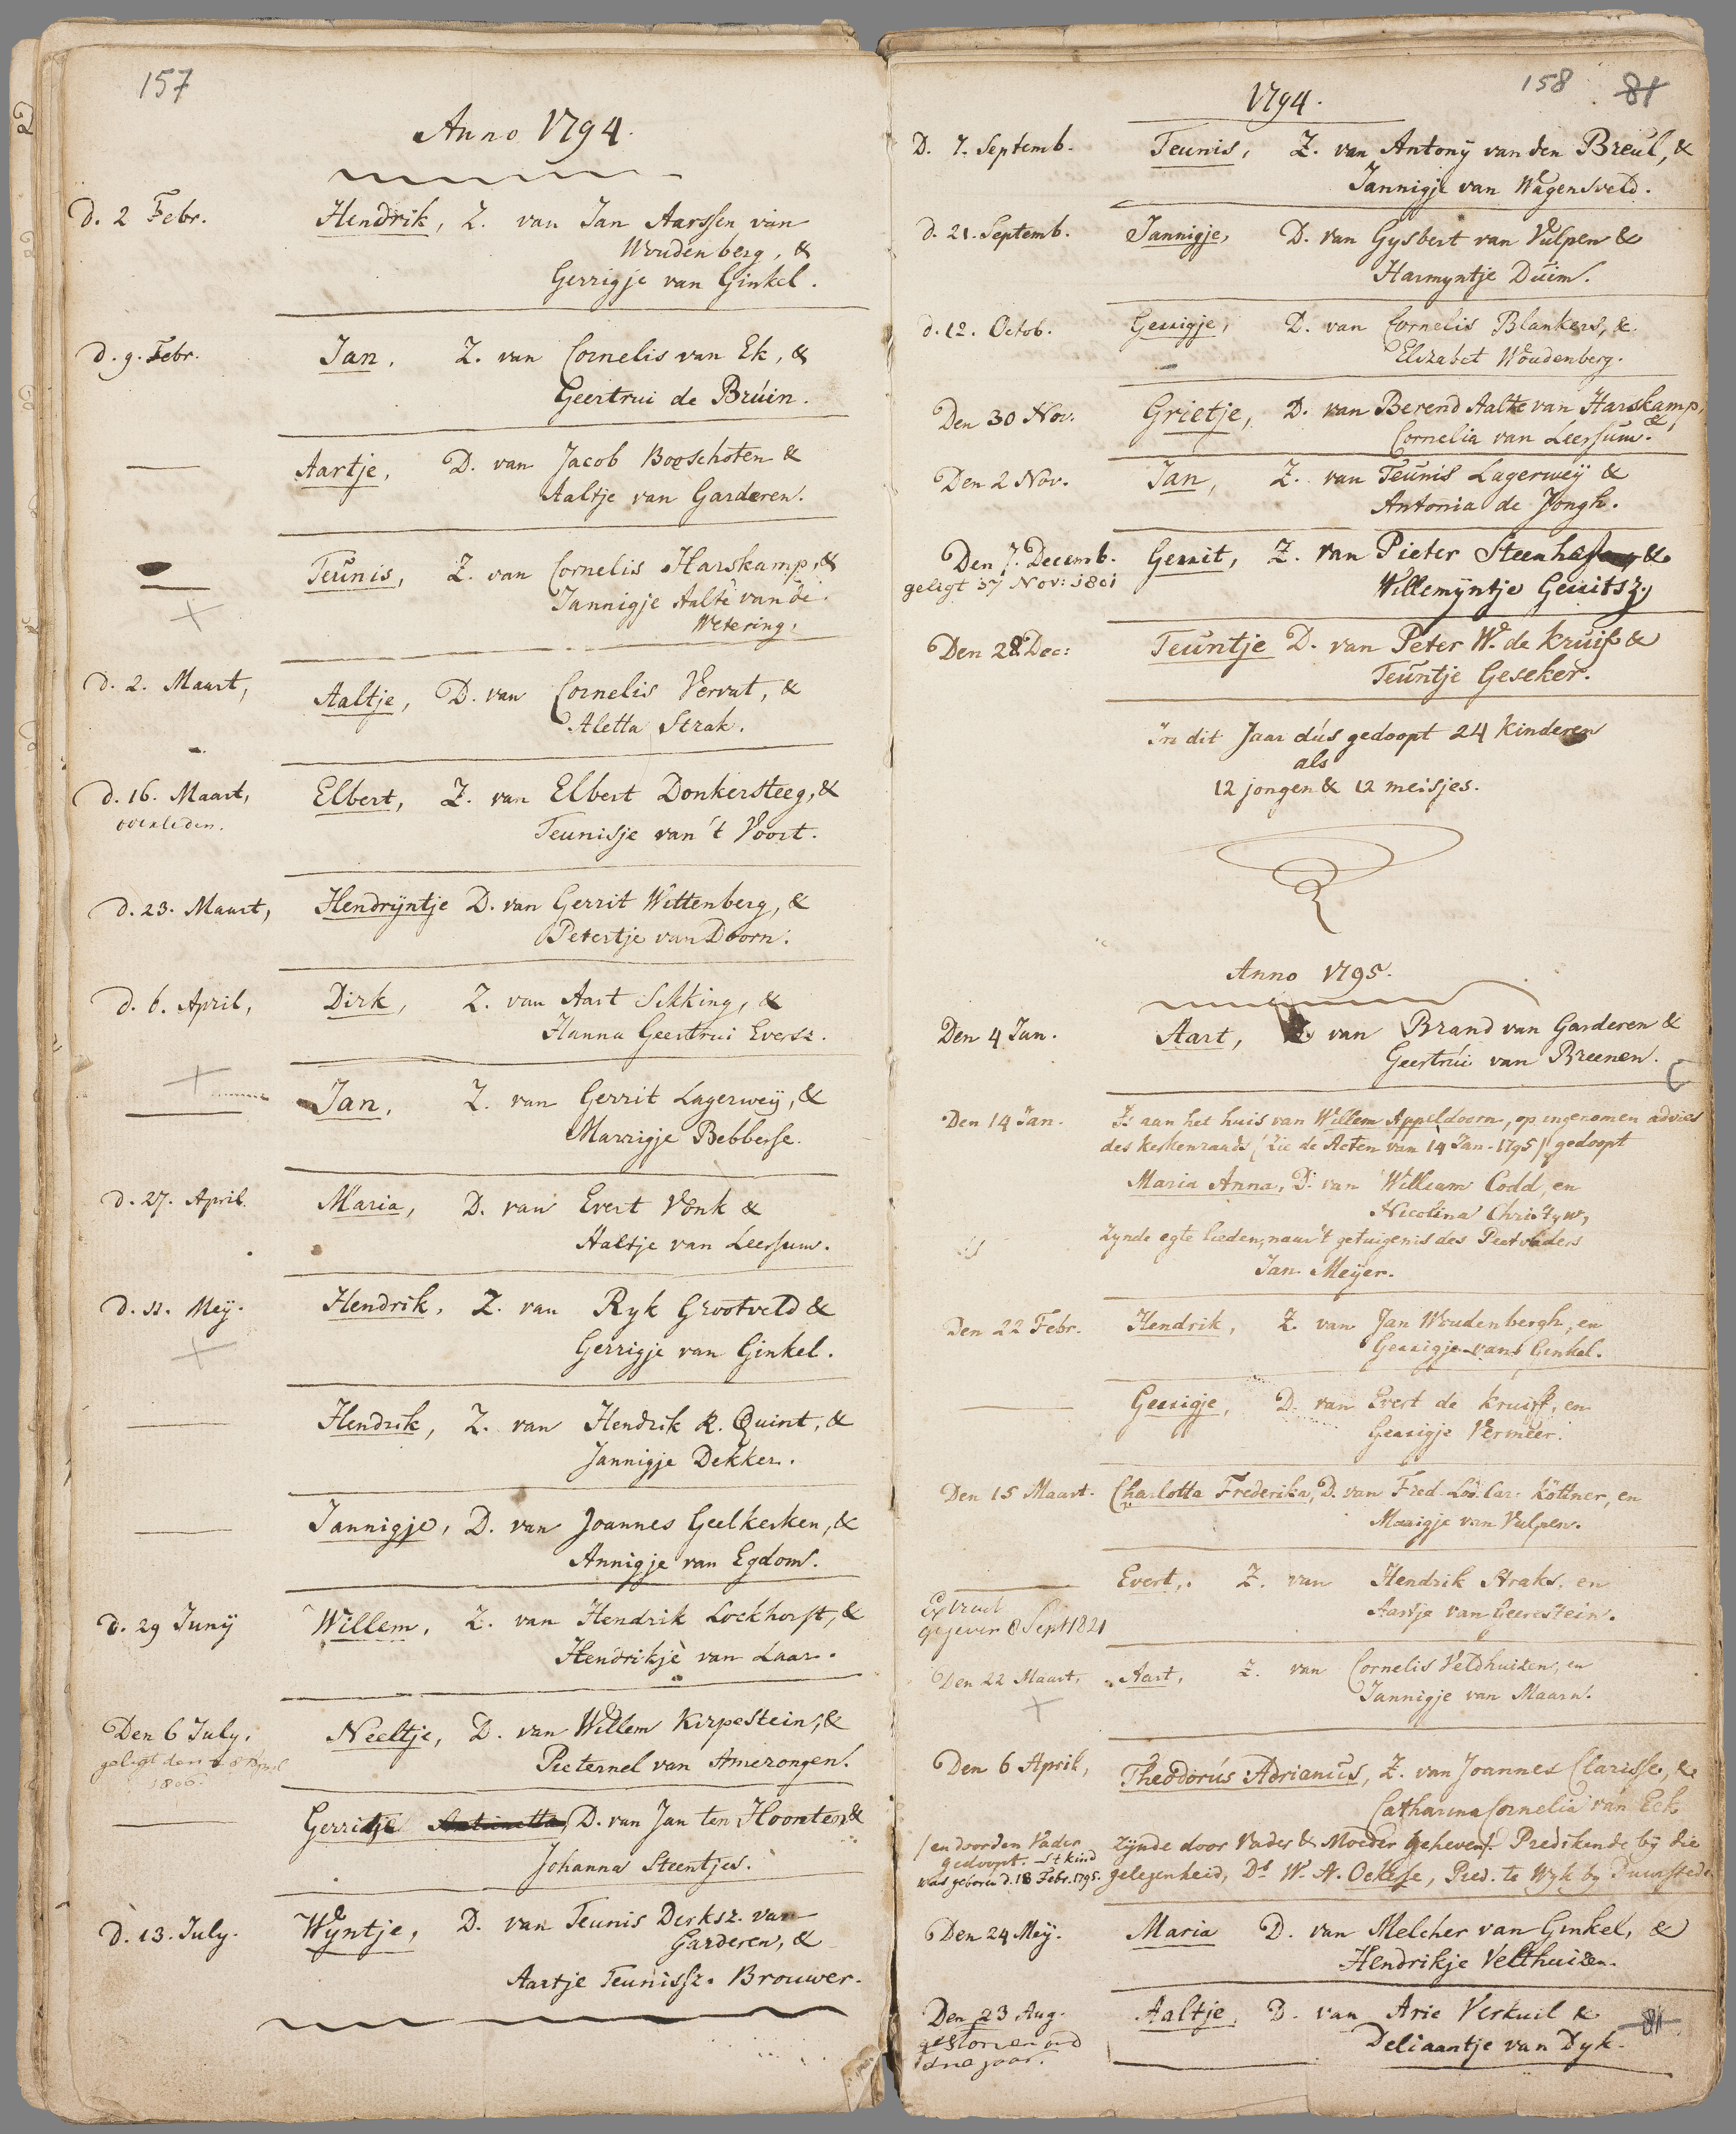 157
Anno 1794.
d. 2 Febr. Hendrik, Z. van Jan Aarssen van
Woudenberg, &
Gerrigje van Ginkel.
d. 9. Febr. Jan, Z. van Cornelis van Ek, &
Geertrui de Bruin.
Aartje, D. van Jacob Booschoten &
Aaltje van Garderen.
Teunis, Z. van Cornelis Harskamp, &
Jannigje Aalte van de
Wetering.
d. 2. Maart, Aaltje, D. van Cornelis Vervat, &
Aletta Strak.
d. 16. Maart, Elbert, Z. van Elbert Donkersteeg, &
overleden. Teunisje van 't Voort.
d. 23. Maart, Hendrijntje D. van Gerrit Wittenberg, &
Petertje van Doorn.
d. 6. April, Dirk, Z. van Aart Sikking, &
Hanna Geertrui Eversz.
Jan, Z. van Gerrit Lagerweij, &
Marrigje Bebberse.
d. 27. April. Maria, D. van Evert Vonk &
Aaltje van Leersum.
d. 11. Meij. Hendrik, Z. van Ryk Grootveld &
Gerrigje van Ginkel.
Hendrik, Z. van Hendrik R. Quint, &
Jannigje Dekker.
Jannigje, D. van Joannes Geelkerken, &
Annigje van Egdom.
d. 29 Junij Willem, Z. van Hendrik Lockhorst, &
Hendrikje van Laar.
Den 6 July. Neeltje, D. van Willem Kirpestein, &
geligt den 8 April
1806. Pieternel van Amerongen.
Gerritje Antonetta D. van Jan ten Hoonten &
Johanna Steentjes.
d. 13. July. Wijntje, D. van Teunis Derksz. van
Garderen, &
Aartje Teunissz. Brouwer.
158 81
1794.
D. 7. Septemb. Teunis, Z. van Antonij van den Breul, &
Jannigje van Wagensveld.
d. 21. Septemb. Jannigje, D. van Gysbert van Vulpen &
Harmyntje Duim.
d. 12. Octob. Gerrigje, D. van Cornelis Blankers, &
Elizabet Woudenberg.
Den 30 Nov. Grietje, D. van Berend Aalte van Harskamp, &
Cornelia van Leersum.
Den 2 Nov. Jan, Z. van Teunis Lagerweij &
Antonia de Jongh.
Den 7. Decemb. Gerrit, Z. van Pieter &
geligt 37 Nov: 1801 Willemijntje Gerritsz.
Den 28 Dec: Teuntje D. van Peter W. de Kruif &
Teuntje Geseker.
In dit Jaar dus gedoopt 24 kinderen
als
12 jongen & 12 meisjes.
Anno 1795.
Den 4 Jan. Aart, Z. van Brand van Garderen &
Geertrui van Breenen.
Den 14 Jan. Is aan het huis van Willem Appeldoorn, op ingenomen advies
des kerkenraads (Zie de Acten van 14 Jan. 1795) gedoopt
Maria Anna, D. van William Codd, en
Nicolina Christyn,
Zynde egte lieden, naar 't getuigenis des Peetvaders
Jan Meyer.
Den 22 Febr. Hendrik, Z. van Jan Woudenbergh, en
Gerrigje van Ginkel.
Gerrigje, D. van Evert de Kruiff, en
Gerrigje Vermeer.
Den 15 Maart. Charlotta Frederika, D. van Fred. Lod. Car. Köttner, en
Marrigje van Vulpen.
Evert, Z. van Hendrik Straks, en
Extract
gegeven 8 Sept 1821 Aartje van Geerestein.
Den 22 Maart, Aart, Z. van Cornelis Veldhuizen, en
Jannigje van Maarn.
Den 6 April, Theodorus Adrianus, Z. van Joannes Clarisse, &
Catharina Cornelia van Eck
(en door den Vader Zijnde door Vader & Moeder geheven. Predikende bij die
gedoopt. 't kind
was geboren d. 18 Febr. 1795. gelegenheid, Ds. W. A. Ockerse, Pred. te Wyk by Duurstede
Den 24 Meij. Maria D. van Melcher van Ginkel, &
Hendrikje Velthuizen.
Den 23 Aug. Aaltje, D. van Arie Verkuil &
gestorven oud
jaar. Deliaantje van Dyk.